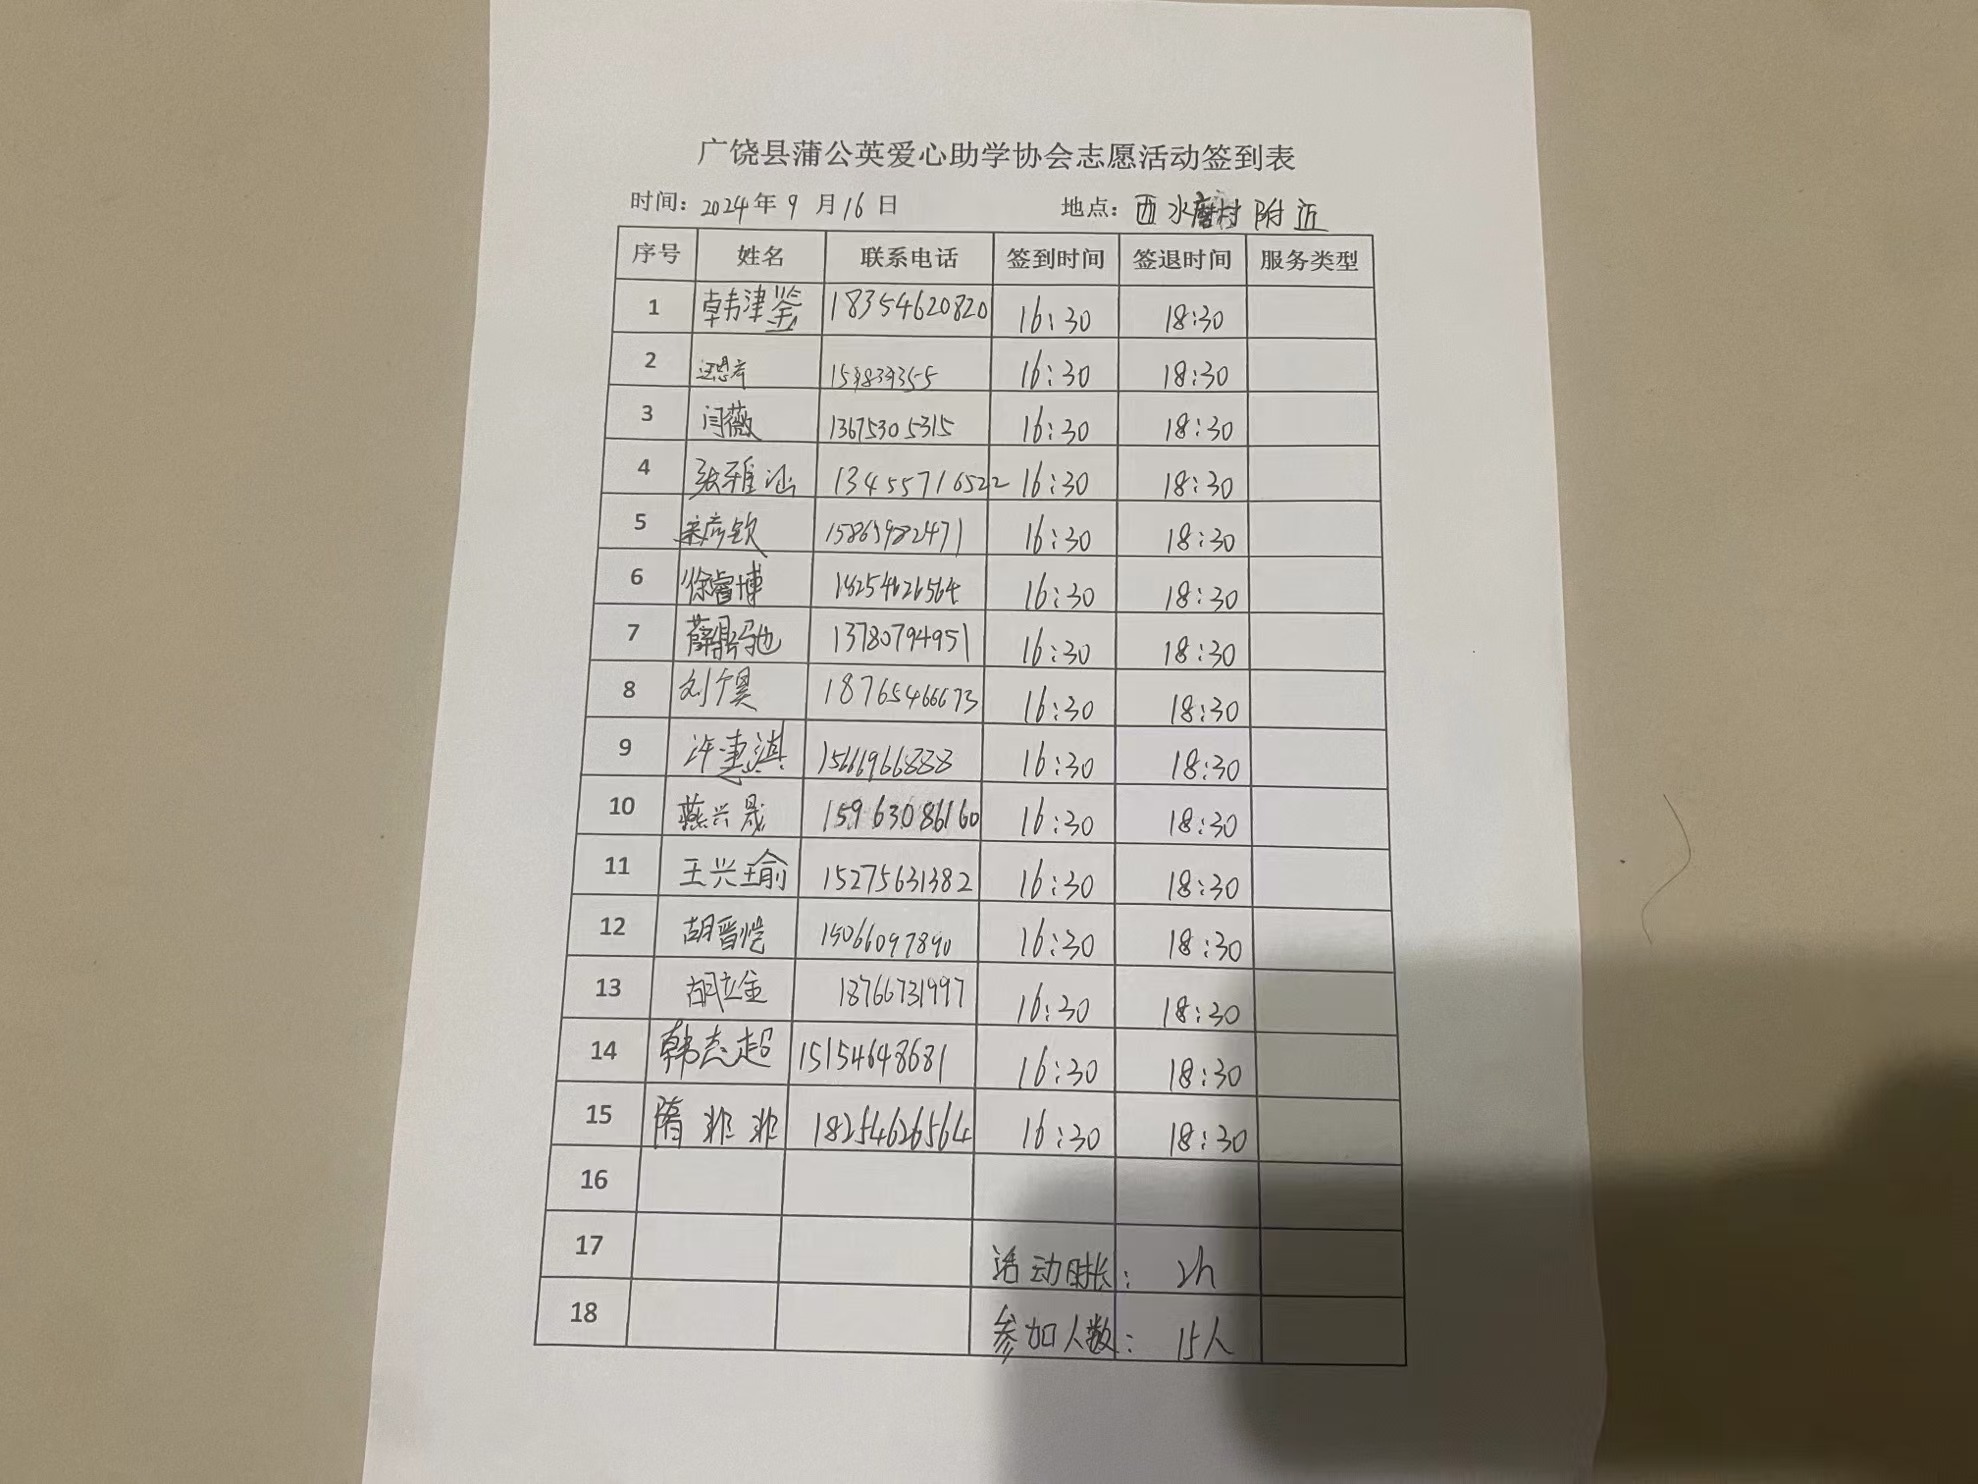 广饶县蒲公英爱心助学协会志愿活动签到表
时间：2024年9月16日 地点：西水磨村附近
序号 姓名 联系电话 签到时间 签退时间 服务类型
1 韩津鉴 18354620820 16:30 18:30
2 16:30 18:30
3 闫薇 13675305315 16:30 18:30
4 张雅涵 13455716522 16:30 18:30
5 宋彦钦 15863982471 16:30 18:30
6 徐睿博 18254626564 16:30 18:30
7 薛鼎驰 13780794951 16:30 18:30
8 刘昊 18765466673 16:30 18:30
9 许惠淇 15666966888 16:30 18:30
10 燕兴晟 15963086160 16:30 18:30
11 王兴瑜 15275631382 16:30 18:30
12 胡晋恺 15066097890 16:30 18:30
13 胡立金 18766731997 16:30 18:30
14 韩志超 15154648681 16:30 18:30
15 隋非非 18254626564 16:30 18:30
16
17 活动时长： 2h
18 参加人数： 15人